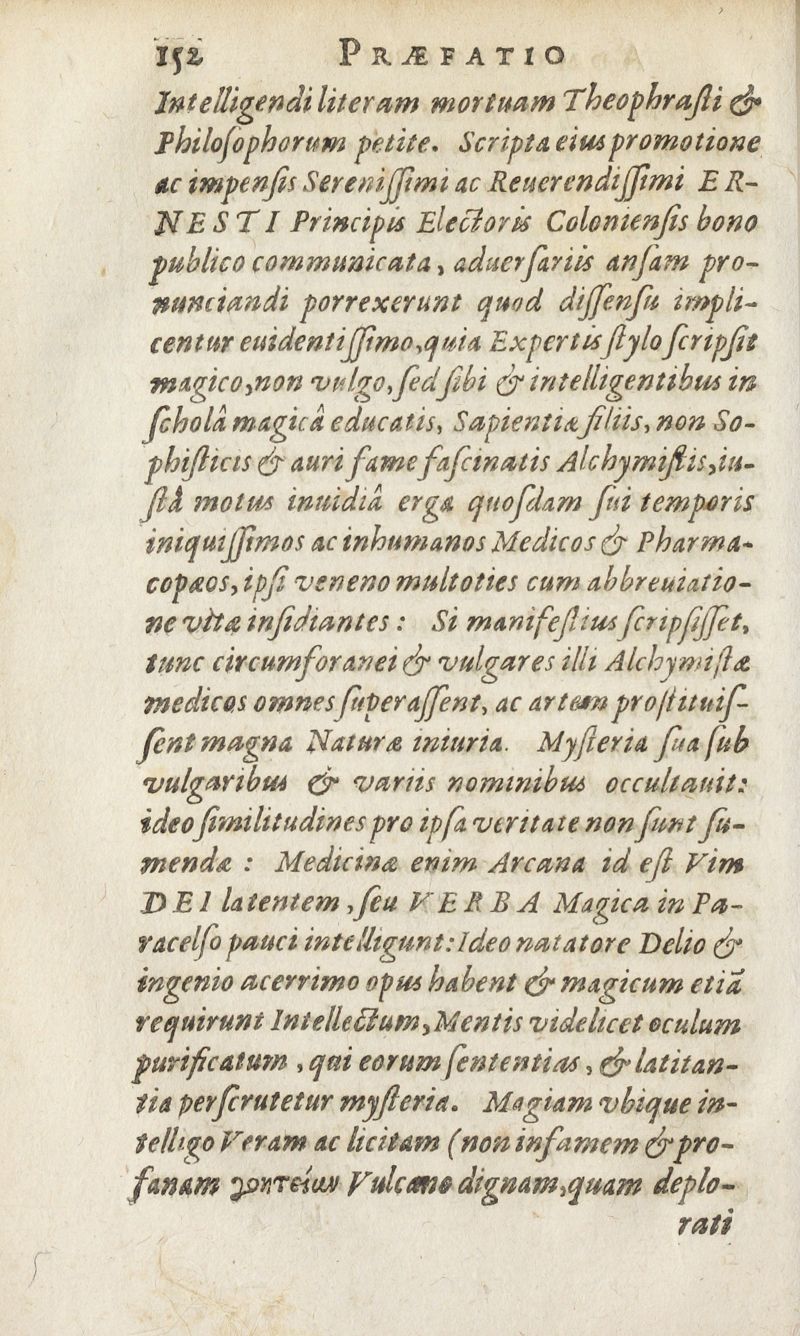 152 PRÆFATIO
Intelligendi literam mortuam Theophraſti &
Philoſophorum petite. Scripta eius promotione
ac impenſis Sereniſſimi ac Reuerendiſſimi ER-
NESTI Principis Electoris Colonienſis bono
publico communicata, aduerſariis anſam pro-
nunciandi porrexerunt quod diſſenſu impli-
centur euidentiſſimo, quia Expertis ſtylo ſcripſit
magico, non vulgo, ſed ſibi & intelligentibus in
ſcholâ magicâ educatis, Sapientiæ filiis, non So-
phiſticis & auri fame faſcinatis Alchymiſtis, iu-
ſtâ motus inuidiâ erga quoſdam ſui temporis
iniquiſſimos ac inhumanos Medicos & Pharma-
copæos, ipſi veneno multoties cum abbreuiatio-
ne vitæ inſidiantes : Si manifeſtius ſcripſiſſet,
tunc circumforanei & vulgares illi Alchymiſtæ
medicos omnes ſuperaſſent, ac artem proſtituiſ-
ſent magna Naturæ iniuria. Myſteria ſua ſub
vulgaribus & variis nominibus occultauit:
ideo ſimilitudines pro ipſa veritate non ſunt ſu-
mendæ : Medicinæ enim Arcana id eſt Vim
DEI latentem, ſeu VERBA Magica in Pa-
racelſo pauci intelligunt: Ideo natatore Delio &
ingenio acerrimo opus habent & magicum etiã
requirunt Intellectum, Mentis videlicet oculum
purificatum, qui eorum ſententias, & latitan-
tia perſcrutetur myſteria. Magiam vbique in-
telligo Veram ac licitam (non infamem & pro-
fanam γοητείαν Vulcano dignam, quam deplo-
rati